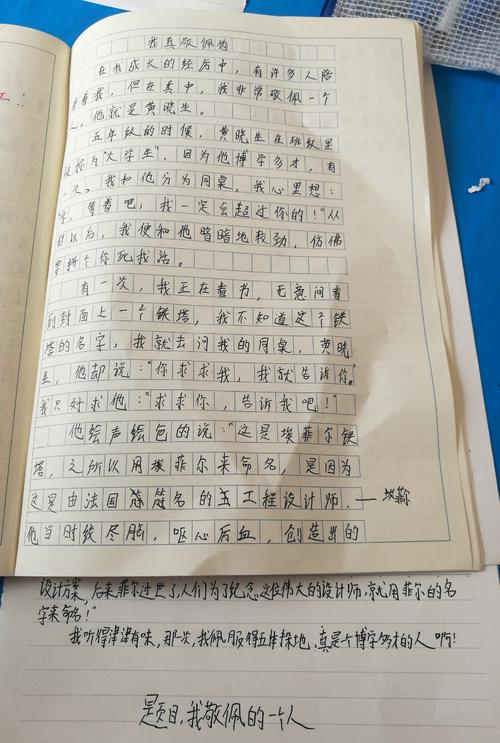 我真敬佩他
在我成长的经历中，有许多人陪
伴着我，但在其中，我非常敬佩一个
人，他就是黄晓生。
五年级的时候，黄晓生在班级里
被称为"大学生"，因为他博学多才，有
一次，我和他分为同桌，我心里想：
"哼，等着吧，我一定会超过你的！"从
时以后，我便和他暗暗地较劲，仿佛
要拼个你死我活。
有一次，我正在看书，无意间看
到封面上一个铁塔，我不知道这个铁
塔的名字，我就去问我的同桌，黄晓
生，他却说："你求求我，我就告诉你。"
我只对求他："求求你，告诉我吧！"
他绘声绘色的说："这是埃菲尔铁
塔，之所以用埃菲尔来命名，是因为
这是由法国著名的工程设计师，——埃菲尔
他当时绞尽脑，呕心后血，创造出的
设计方案，后来菲尔过世了，人们为了纪念这位伟大的设计师，就用菲尔的名
字来命名！"
我听得津津有味，那一次，我佩服得五体投地，真是个博学多才的人啊！
题目，我敬佩的一个人